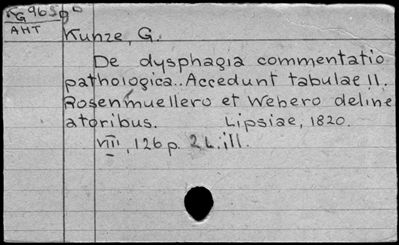 KG965g0
AHT
Kunze, G.
De dysphagia commentatio
pathologica.. Accedunt tabulae II.
Rosenmuellero et Webero deline
atoribus. Lipsiae, 1820.
VIII, 126 p. 2 L. ill.